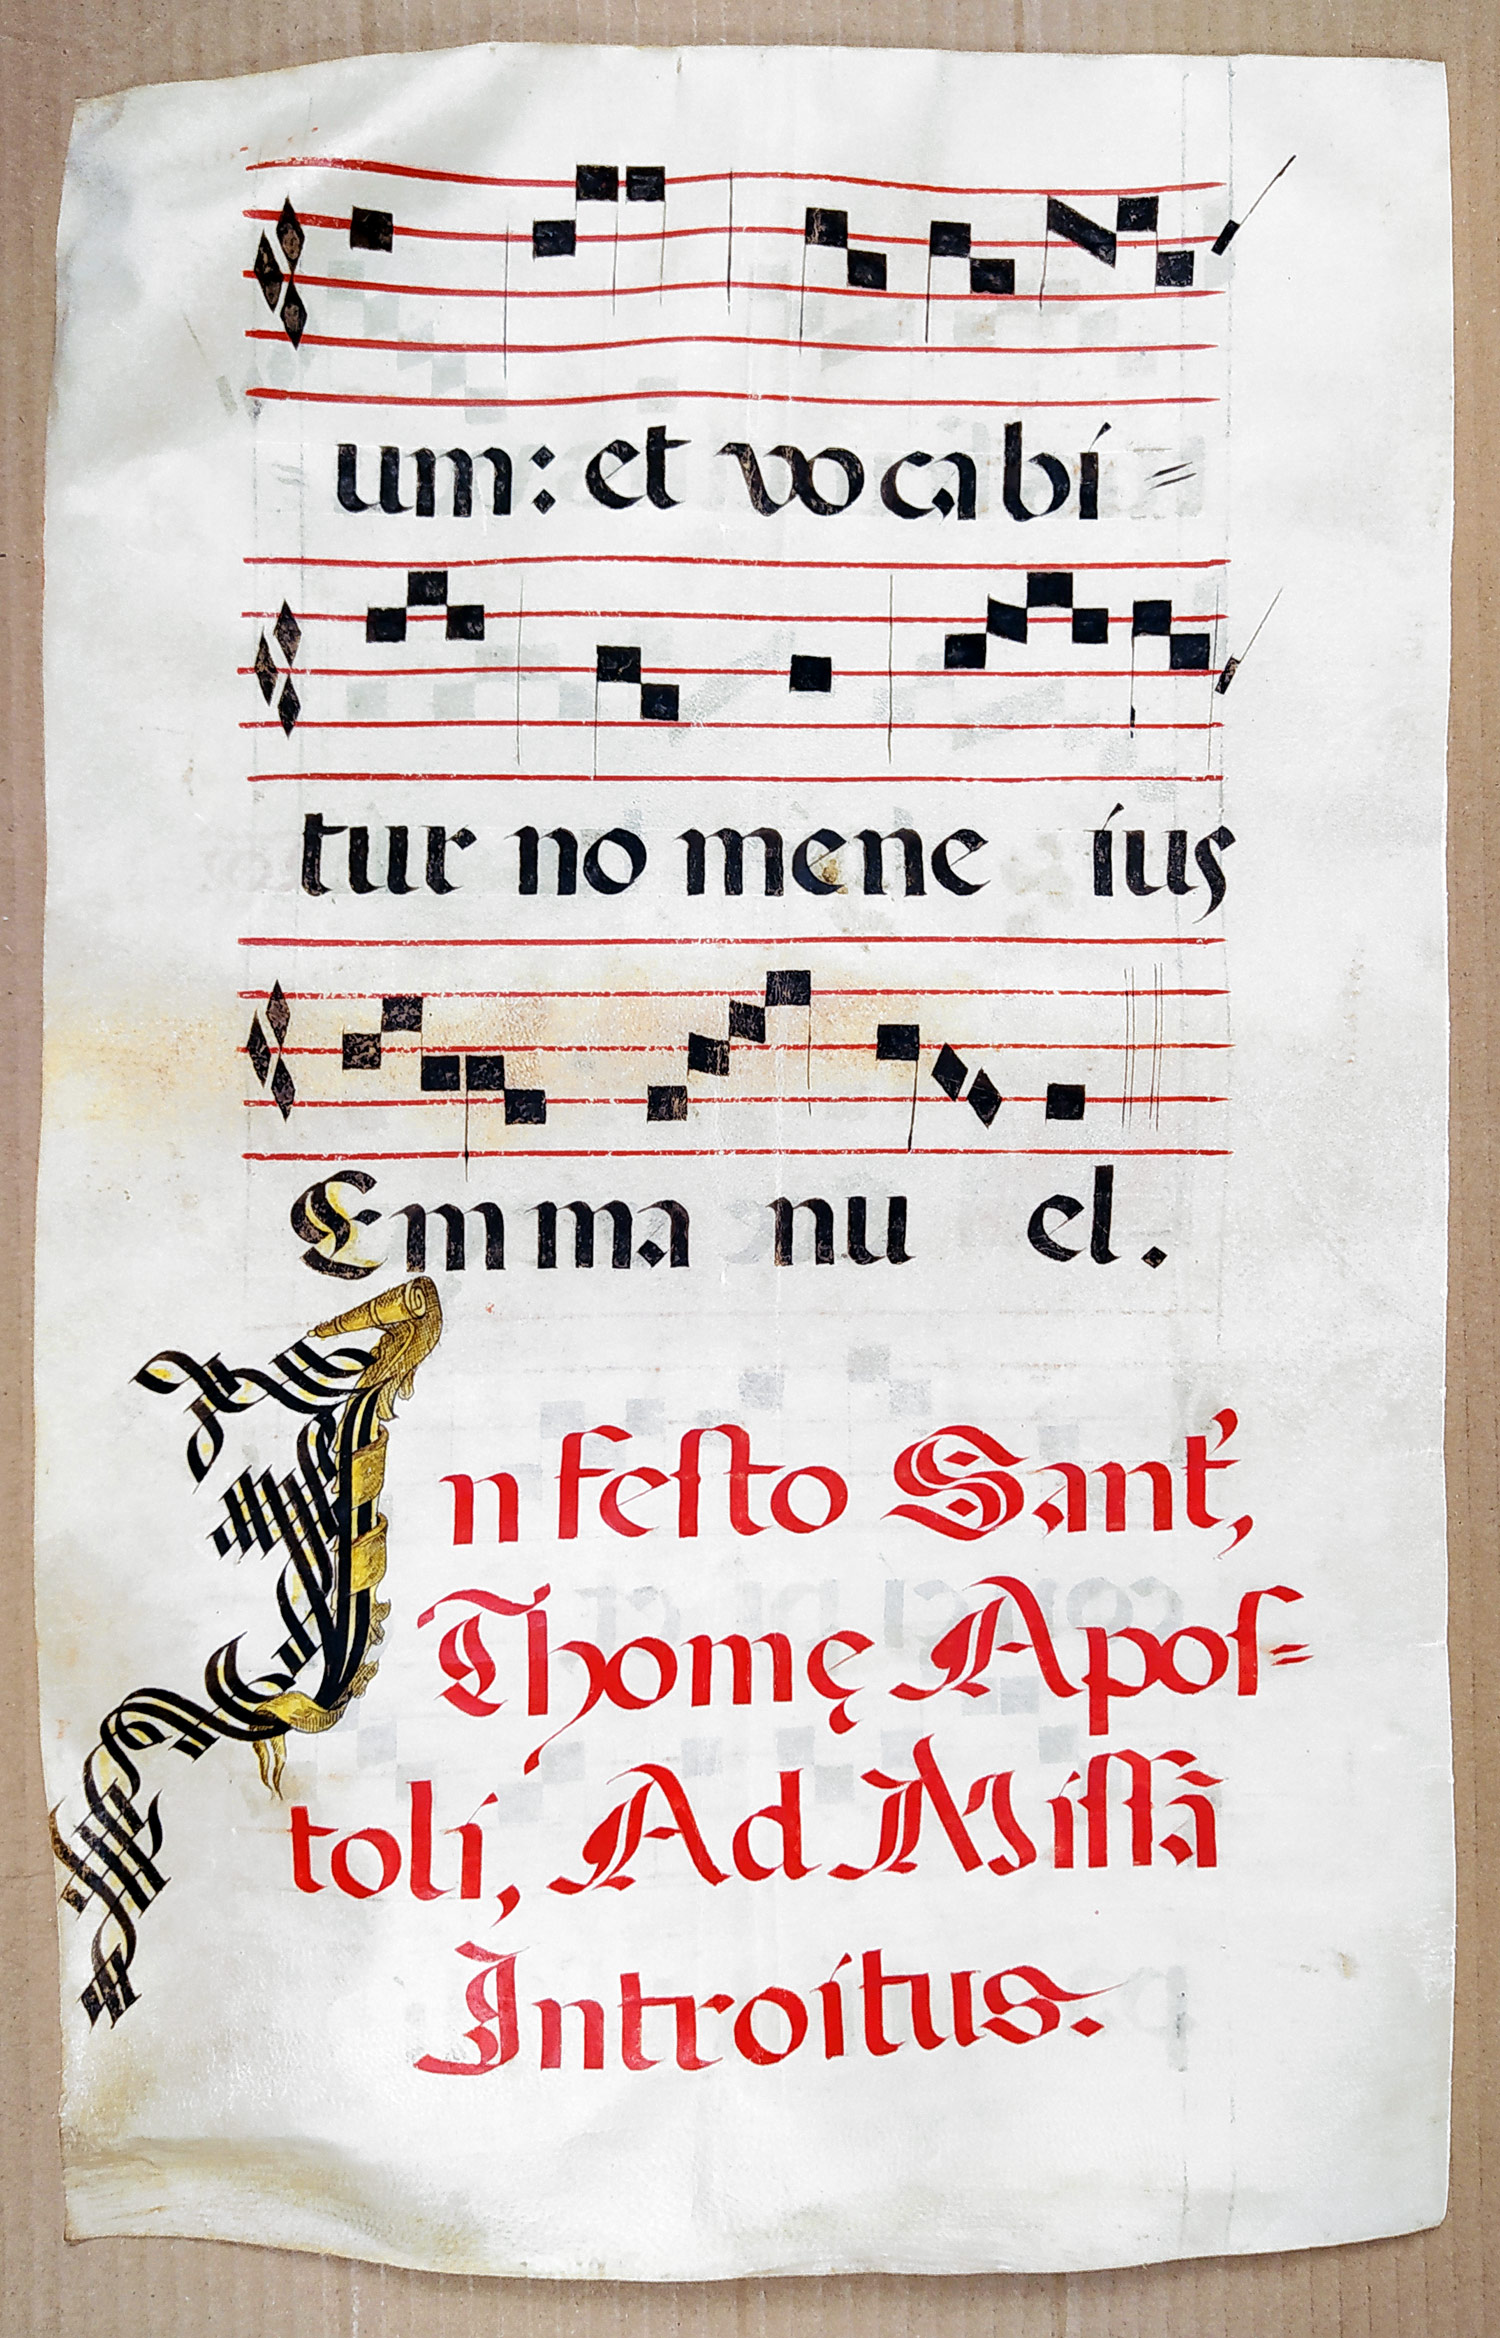 um: et vocabi=
tur no mene ius
Emma nu el.
In festo Sant',
Thomę Apos=
toli, Ad Missā
Introitus.